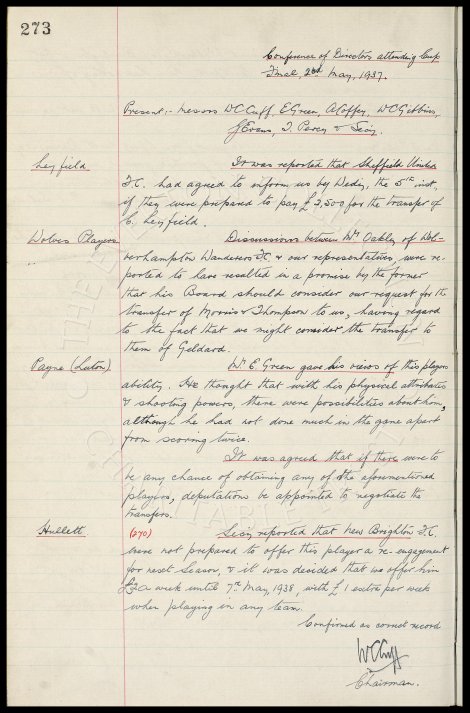 273
Conference of Directors attending Cup
Final, 2nd May, 1937.
Present:- Messrs W.C. Cuff, E. Green, A. Coffey, W.C. Gibbins,
J. Evans, T. Percy & Secy.
Leyfield It was reported that Sheffield United
F.C. had agreed to inform us by Wedy, the 5th inst,
if they were prepared to pay £2,500 for the transfer of
C. Leyfield.
Wolves Players Discussions between Mr Oakley of Wol-
verhampton Wanderers F.C. & our representatives, were re-
ported to have resulted in a promise by the former
that his Board should consider our request for the
transfer of Morris & Thompson to us, having regard
to the fact that we might consider the transfer to
them of Geldard.
Payne (Luton) Mr E. Green gave his views of this players
ability. He thought that with his physical attributes
& shooting powers, there were possibilities about him,
although he had not done much in the game apart
from scoring twice.
It was agreed that if there were to
be any chance of obtaining any of the aforementioned
players, deputations be appointed to negotiate the
transfers.
Hullett (270) Secy reported that New Brighton F.C.
were not prepared to offer this player a re-engagement
for next Season, & it was decided that we offer him
a week until 7th May, 1938, with £1 extra per week
when playing in any team.
Confirmed as correct record
W.C. Cuff
Chairman.